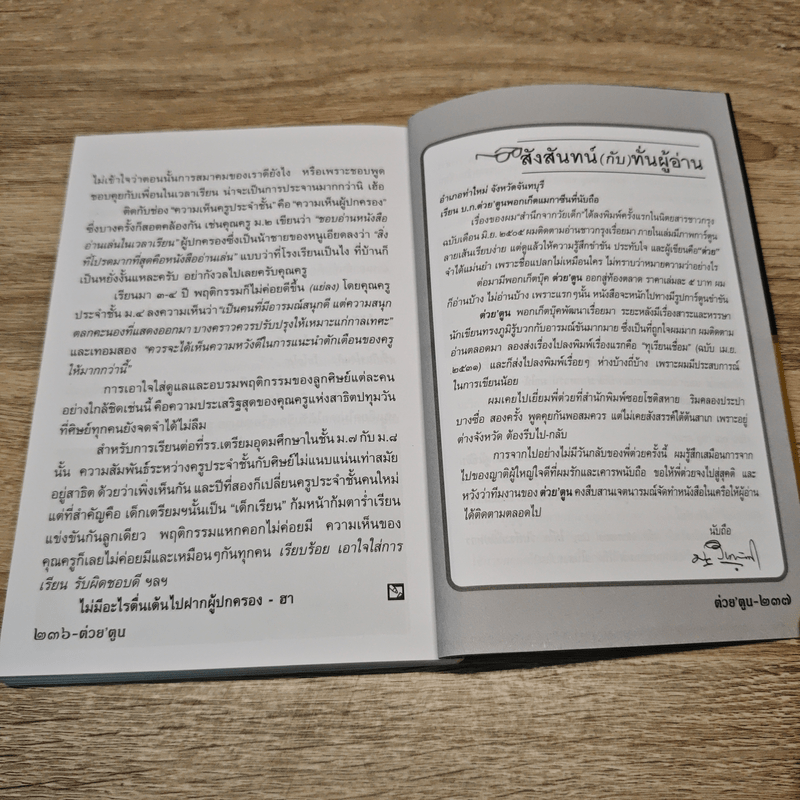 ไม่เข้าใจว่าตอนนั้นการสมาคมของเราดียังไง หรือเพราะชอบพูด
ชอบคุยกับเพื่อนในเวลาเรียน น่าจะเป็นการประจานมากกว่านิ เฮ้อ
ติดกับช่อง “ความเห็นครูประจำชั้น” คือ “ความเห็นผู้ปกครอง”
ซึ่งบางครั้งก็สอดคล้องกัน เช่นคุณครู ม.๒ เขียนว่า “ชอบอ่านหนังสือ
อ่านเล่นในเวลาเรียน” ผู้ปกครองซึ่งเป็นน้าชายของหนูเอียดลงว่า “สิ่ง
ที่โปรดมากที่สุดคือหนังสืออ่านเล่น” แบบว่าที่โรงเรียนเป็นไง ที่บ้านก็
เป็นหยังงั้นแหละครับ อย่ากังวลไปเลยครับคุณครู
เรียนมา ๓-๔ ปี พฤติกรรมก็ไม่ค่อยดีขึ้น (แย่ลง) โดยคุณครู
ประจำชั้น ม.๔ ลงความเห็นว่า “เป็นคนที่มีอารมณ์สนุกดี แต่ความสนุก
ตลกคะนองที่แสดงออกมา บางคราวควรปรับปรุงให้เหมาะแก่กาลเทศะ”
และเทอมสอง “ควรจะได้เห็นความหวังดีในการแนะนำตักเตือนของครู
ให้มากกว่านี้”
การเอาใจใส่ดูแลและอบรมพฤติกรรมของลูกศิษย์แต่ละคน
อย่างใกล้ชิดเช่นนี้ คือความประเสริฐสุดของคุณครูแห่งสาธิตปทุมวัน
ที่ศิษย์ทุกคนยังจดจำได้ไม่ลืม
สำหรับการเรียนต่อที่รร.เตรียมอุดมศึกษาในชั้น ม.๗ กับ ม.๘
นั้น ความสัมพันธ์ระหว่างครูประจำชั้นกับศิษย์ไม่แนบแน่นเท่าสมัย
อยู่สาธิต ด้วยว่าเพิ่งเห็นกัน และปีที่สองก็เปลี่ยนครูประจำชั้นคนใหม่
แต่ที่สำคัญคือ เด็กเตรียมฯนั้นเป็น “เด็กเรียน” ก้มหน้าก้มตาร่ำเรียน
แข่งขันกันลูกเดียว พฤติกรรมแหกคอกไม่ค่อยมี ความเห็นของ
คุณครูก็เลยไม่ค่อยมีและเหมือนๆกันทุกคน เรียบร้อย เอาใจใส่การ
เรียน รับผิดชอบดี ฯลฯ
ไม่มีอะไรตื่นเต้นไปฝากผู้ปกครอง - ฮา
๒๓๖-ต่วย'ตูน
สังสันทน์ (กับ) ทั่นผู้อ่าน
อำเภอท่าใหม่ จังหวัดจันทบุรี
เรียน บ.ก.ต่วยตูนพอกเก็ตแมกาซีนที่นับถือ
เรื่องของผม “สำนึกจากวัยเด็ก” ได้ลงพิมพ์ครั้งแรกในนิตยสารชาวกรุง
ฉบับเดือน มิ.ย. ๒๕๐๔ ผมติดตามอ่านชาวกรุงเรื่อยมา ภายในเล่มมีภาพการ์ตูน
ลายเส้นเรียบง่าย แต่ดูแล้วให้ความรู้สึกขำขัน ประทับใจ และผู้เขียนคือ“ต่วย”
จำได้แม่นยำ เพราะชื่อแปลกไม่เหมือนใคร ไม่ทราบว่าหมายความว่าอย่างไร
ต่อมามีพอกเก็ตบุ๊ค ต่วย'ตูน ออกสู่ท้องตลาด ราคาเล่มละ ๕ บาท ผม
ก็อ่านบ้าง ไม่อ่านบ้าง เพราะแรกๆนั้น หนังสือจะหนักไปทางมีรูปการ์ตูนขำขัน
ต่วย'ตูน พอกเก็ตบุ๊คพัฒนาเรื่อยมา ระยะหลังมีเรื่องสาระและหรรษา
นักเขียนทรงภูมิรู้บวกกับอารมณ์ขันมากมาย ซึ่งเป็นที่ถูกใจผมมาก ผมติดตาม
อ่านตลอดมา ลองส่งเรื่องไปลงพิมพ์เรื่องแรกคือ “ทุเรียนเชื่อม” (ฉบับ เม.ย.
๒๕๓๑) และก็ส่งไปลงพิมพ์เรื่อยๆ ห่างบ้างถี่บ้าง เพราะผมมีประสบการณ์
ในการเขียนน้อย
ผมเคยไปเยี่ยมพี่ต่วยที่สำนักพิมพ์ซอยโชติสหาย ริมคลองประปา
บางซื่อ สองครั้ง พูดคุยกันพอสมควร แต่ไม่เคยสังสรรค์ได้ต้นสาเก เพราะอยู่
ต่างจังหวัด ต้องรีบไป-กลับ
การจากไปอย่างไม่มีวันกลับของพี่ต่วยครั้งนี้ ผมรู้สึกเสมือนการจาก
ไปของญาติผู้ใหญ่ใจดีที่ผมรักและเคารพนับถือ ขอให้พี่ต่วยจงไปสู่สุคติ และ
หวังว่าทีมงานของ ต่วย'ตูน คงสืบสานเจตนารมณ์จัดทำหนังสือในเครือให้ผู้อ่าน
ได้ติดตามตลอดไป
นับถือ
ต่วย'ตูน-๒๓๗